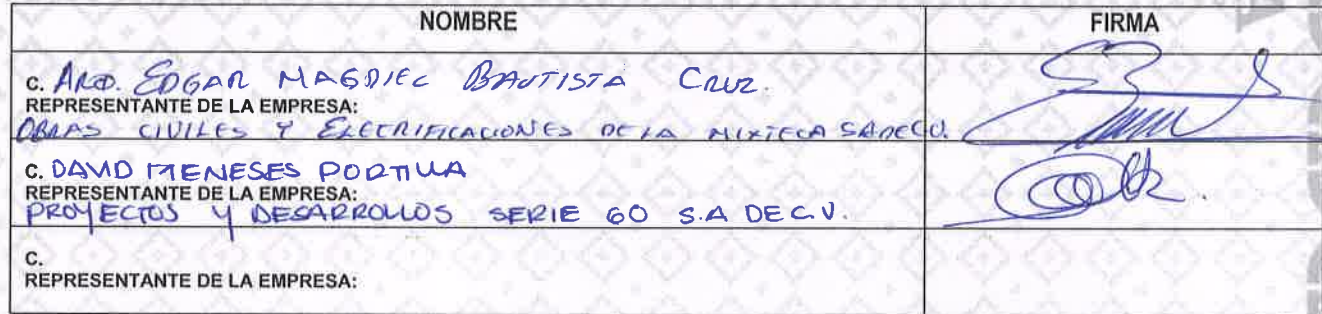 NOMBRE
FIRMA
C. ARQ. EDGAR MAGDIEL BAUTISTA CRUZ.
REPRESENTANTE DE LA EMPRESA:
OBRAS CIVILES Y ELECRIFICACIONES DE LA MIXTECA SA DE C.V.
C. DAVID MENESES PORTILLA
REPRESENTANTE DE LA EMPRESA:
PROYECTOS Y DESARROLLOS SERIE 60 S.A DE C.V.
C.
REPRESENTANTE DE LA EMPRESA: